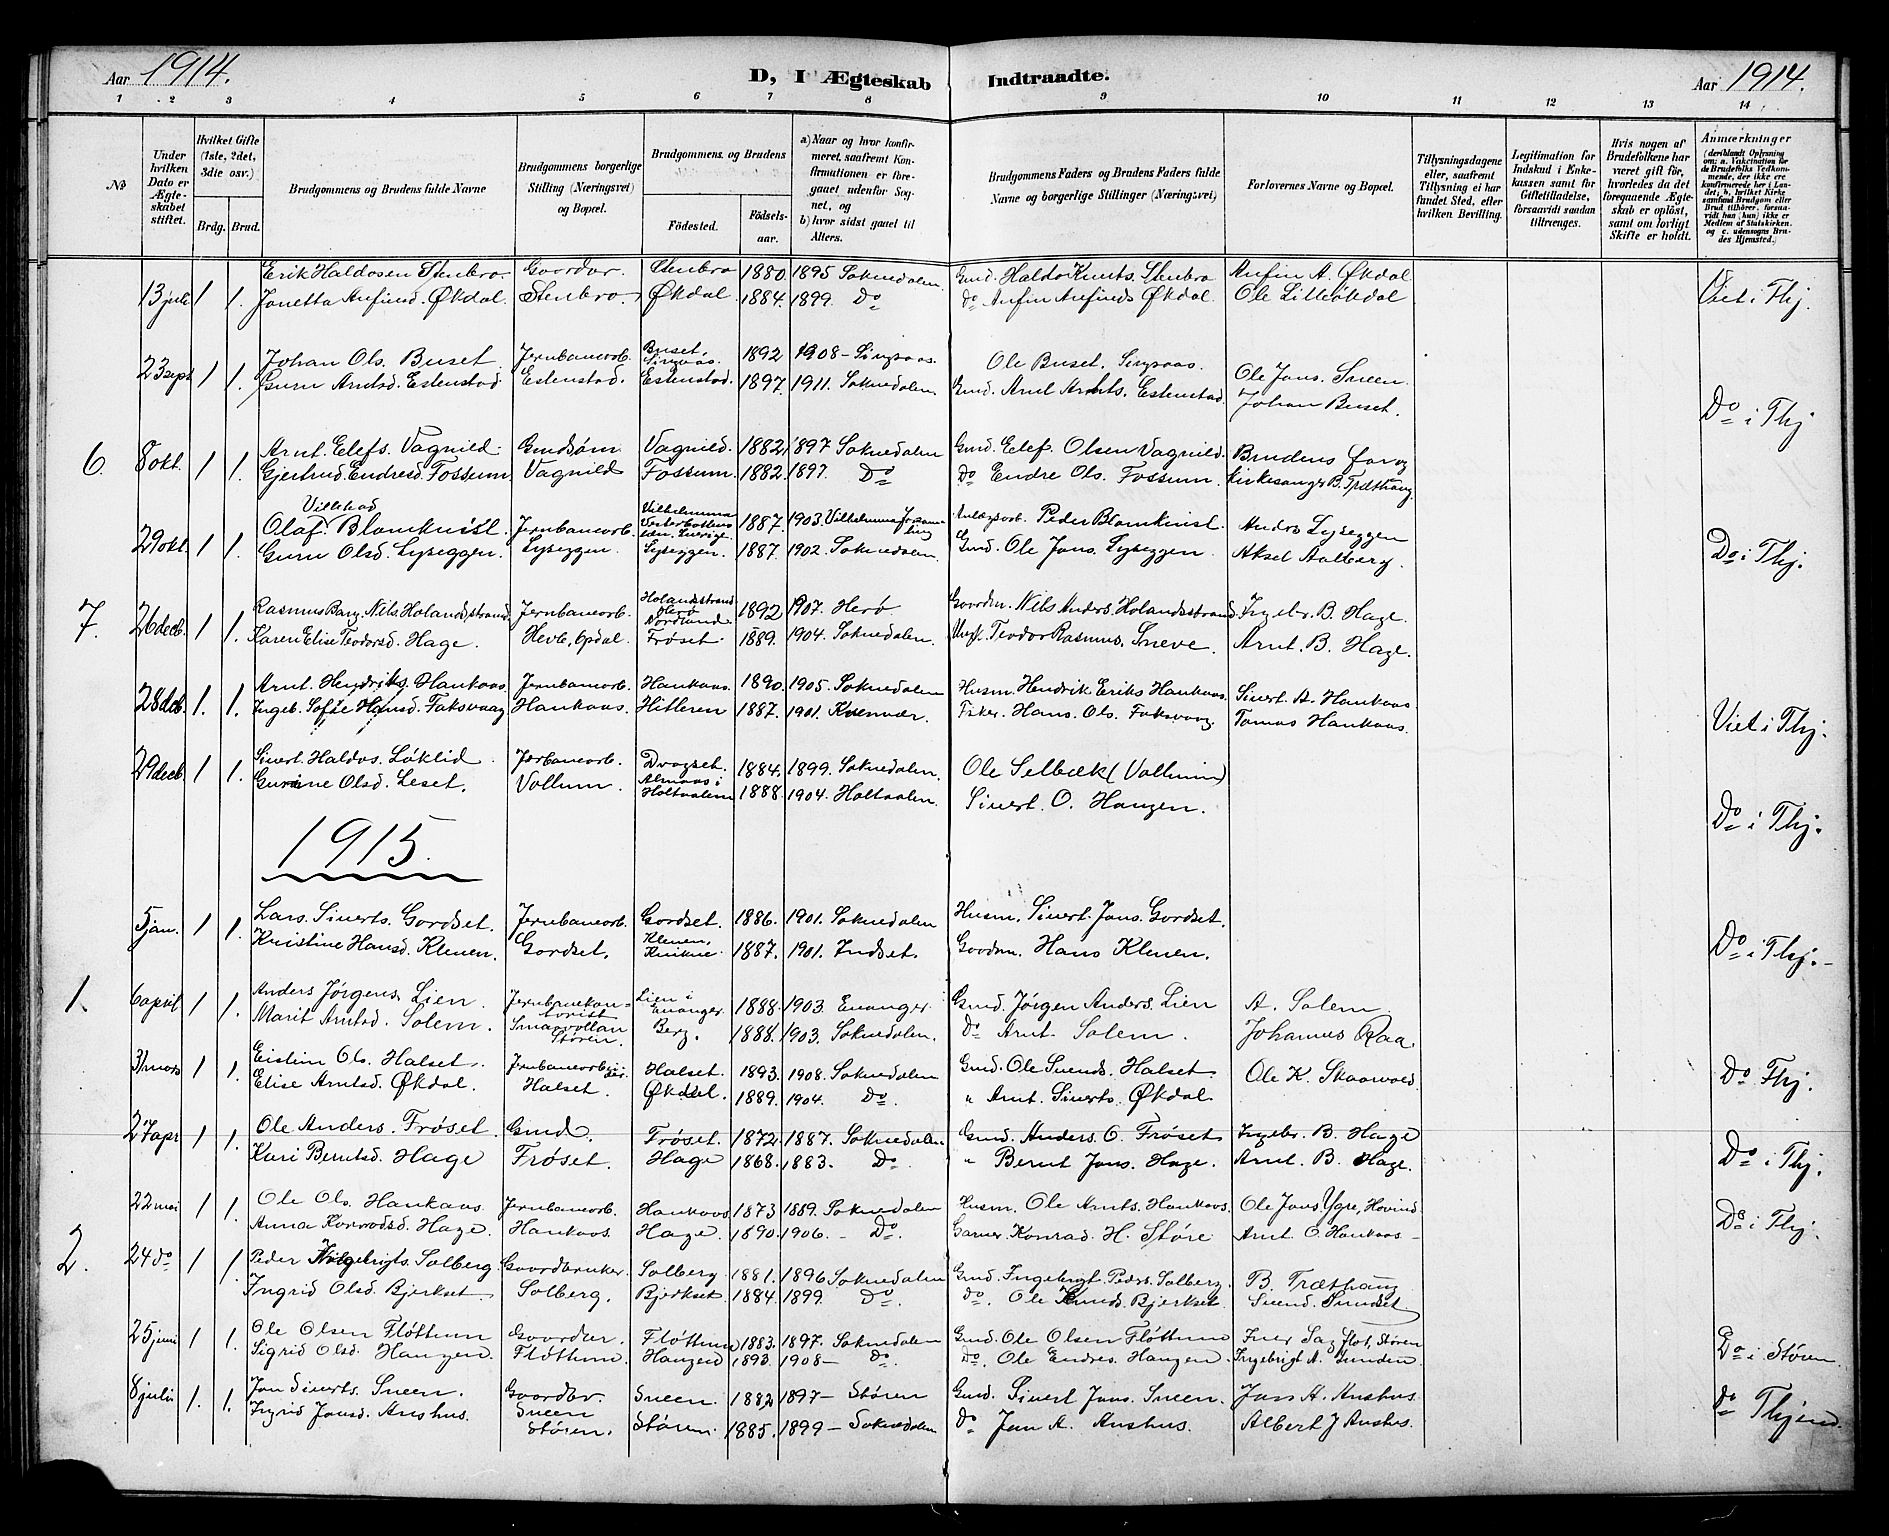 Aar 1914.
D, I Ægteskab Indtraadte.
Aar 1914.
1 2 3 4 5 6 7 8 9 10 11 12 13 14
No
Under hvilken Dato er Ægteskabet stiftet.
Hvilket Gifte (1ste, 2det, 3die osv.)
Brdg. Brud.
Brudgommens og Brudens fulde Navne
Brudgommens borgerlige Stilling (Næringsvei) og Bopæl.
Brudgommens og Brudens
Fødested.
Fødselsaar.
a) Naar og hvor konfirmeret, saafremt Konfirmationen er foregaaet udenfor Sognet, og
b) hvor sidst gaaet til Alters.
Brudgommens Faders og Brudens Faders fulde Navne og borgerlige Stillinger (Næringsvei)
Forlovernes Navne og Bopæl.
Tillysningsdagene eller, saafremt Tillysning ei har fundet Sted, efter hvilken Bevilling.
Legitimation for Indskud i Enkekassen samt for Giftetilladelse, forsaavidt saadan tiltrænges.
Hvis nogen af Brudefolkene har været gift før, hvorledes da det foregaaende Ægteskab er opløst, samt om lovligt Skifte er holdt.
Anmærkninger (deriblandt Oplysning om: a. Vakcination for de Brudefolks Vedkommende, der ikke ere konfirmerede her i Landet, b. hvilket Kirkesamfund Brudgom eller Brud tilhører, forsaavidt han (hun) ikke er Medlem af Statskirken, og c. udensogns Brudes Hjemsted.)
13 juli 1 1. Erik Haldosen Stenbro Gaardbr. Stenbro 1880 1895 Soknedalen Gmd. Haldo Knuts. Stenbro Anfin A. Økdal
Jonetta Anfinsd. Økdal. Stenbro. Økdal 1884. 1899. Do Do Anfin Anfinds Økdal. Ole Lilleökdal Viet i Thj.
23 sept 1 1. Johan Ols. Buset Jernbanearb. Buset Singsaas. 1892 1908 - Singsaas. Ole Buset. Singsaas. Ole Jons. Sneen.
Guru Arntsd. Estenstad. Estenstad. Estenstad. 1897. 1911. Soknedalen Gmd. Arnt Arnts. Estenstad Johan Buset. Do i Thj
6. 8 okt. 1 1. Arnt. Elefs. Vagnild. Gmdsøn Vagnild. 1882 1897 Soknedalen Gmd. Elef. Olsen Vagnild. Brudens far og
Gjertrud. Endresd. Fossum. Vagnild Fossum. 1882. 1897. Do Do Endre Ols. Fossum. Kirkesanger B. Træthaug
29 okt. 1 1. Olaf Blomkvist. Jernbanearb. Vilhelmina Vesterbottens län, Sverige 1887. 1903. Vilhelmina Peder Blomkvist. Anders Lyseggen
Guru Olsd. Lyseggen. Lyseggen. Lyseggen. 1887. 1902. Soknedalen. Gmd. Ole Jons. Lyseggen Aksel Aalberg. Do i Thj.
7. 26 decb. 1 1. Rasmus Nils. Holandsstrand Jernbanearb. Holandsstrand Herø Nordland 1892 1907. Herø Gaardm. Nils Anders. Holandsstrand Ingebr. B. Hage.
Karen Elise Teodorsd. Hage. Hevle, Opdal. Frøset 1889. 1904. Soknedalen. Teodor Rasmus. Sneve. Arnt. B. Hage.
28 dcb. 1. 1. Arnt. Hendriks. Haukaas Jernbanearb. Haukaas. 1890. 1905. Soknedalen Husm. Hendrik Eriks Haukaas. Sivert A. Haukaas.
Ingeb. Sofie Hansd. Faksvaag Haukaas. Hitteren 1887. 1901. Kvenvær. Fisker. Hans. Ols. Faksvaag Tomas Haukaas. Viet i Thj.
29 decb. 1 1. Sivert Haldos. Løklid Jernbanearb. Dragset. 1884. 1899. Soknedalen. Ole Selbæk (Vollum)
Gurine Olsd. Leset. Vollum. i Holtaalen 1888. 1904. Holtaalen. Sivert. O. Haugen. Do i Thj.
1915.
5 jan. 1 1. Lars. Siverts. Gordset. Jernbanearb. Gordset. 1886. 1901. Soknedalen Husm. Sivert. Jons. Gordset.
Kristine Hansd. Kleven. Gordset. Kleven, Kvikne. 1887. 1901. Indset. Gaardm. Hans Kleven. Do i Thj.
1. 6 april 1 1. Anders Jørgens. Lien. Jernbanekontorist Lien i Evanger. 1888. 1903. Evanger. Gmd. Jørgen Anders. Lien A. Solem
Marit Arntsd. Solem. Støren. Berg. 1888. 1903. Soknedalen. Do Arnt Solem. Johannes Raa.
31 mars 1 1. Eistein Ols. Halset. Jernbanearbeider Halset. 1893. 1908. Soknedalen Gmd. Ole Svends. Halset Ole K. Skaarvold.
Elise Arntsd. Økdal. Halset. Økdal. 1889. 1904. Do " Arnt. Siverts. Økdal. Do Thj.
27 apr 1 1. Ole Anders. Frøset. Gmd. Frøset. 1872. 1887. Soknedalen Gmd. Anders. O. Frøset Ingebr. B. Hage
Kari Berntsd. Hage Frøset. Hage 1868. 1883. Do. " Bernt Jons. Hage. Arnt. B. Hage. Do i Thj.
22 mai 1 1. Ole Ols. Haukaas. Jernbanearb. Haukaas 1873 1889. Soknedalen Husm. Ole Arnts. Haukaas. Ole Jons. Ygre, Hovind
Anna Konradsd. Hage. Haukaas. Hage. 1890. 1906. - Do. Garver Konrad H. Støre Arnt O. Haukaas - Do i Thj.
2. 24 do 1 1. Peder Ingebrigts. Solberg Gaardbruker. Solberg 1881. 1896 Soknedalen Gmd. Ingebrigt Peders. Solberg. B. Træthaug
Ingrid Olsd. Bjerkset. Solberg. Bjerkset. 1884. 1899. Do. Do. Ole Knuds. Bjerkset. Svend. Sundset
25 juni 1 1. Ole Olsen Fløttum Gaardbr. Fløttum 1883. 1897. Soknedalen Gmd. Ole Olsen Fløttum Iver Støren
Sigrid Olsd. Haugen. Fløttum. Haugen 1893. 1908 - Do. Do. Ole Endres. Haugen. Ingebrigt A. Do i Støren
8 juli 1. 1. Jon Siverts. Sneen. Gaardbr. Sneen. 1882 1897 - Støren Gmd. Sivert Jons. Sneen. Jons A. Aushus.
Ingrid Jonsd. Aushus. Sneen Støren. Støren. 1885. 1899 - Soknedalen Do Jon A. Aushus. Albert J Aushus. Do Thj